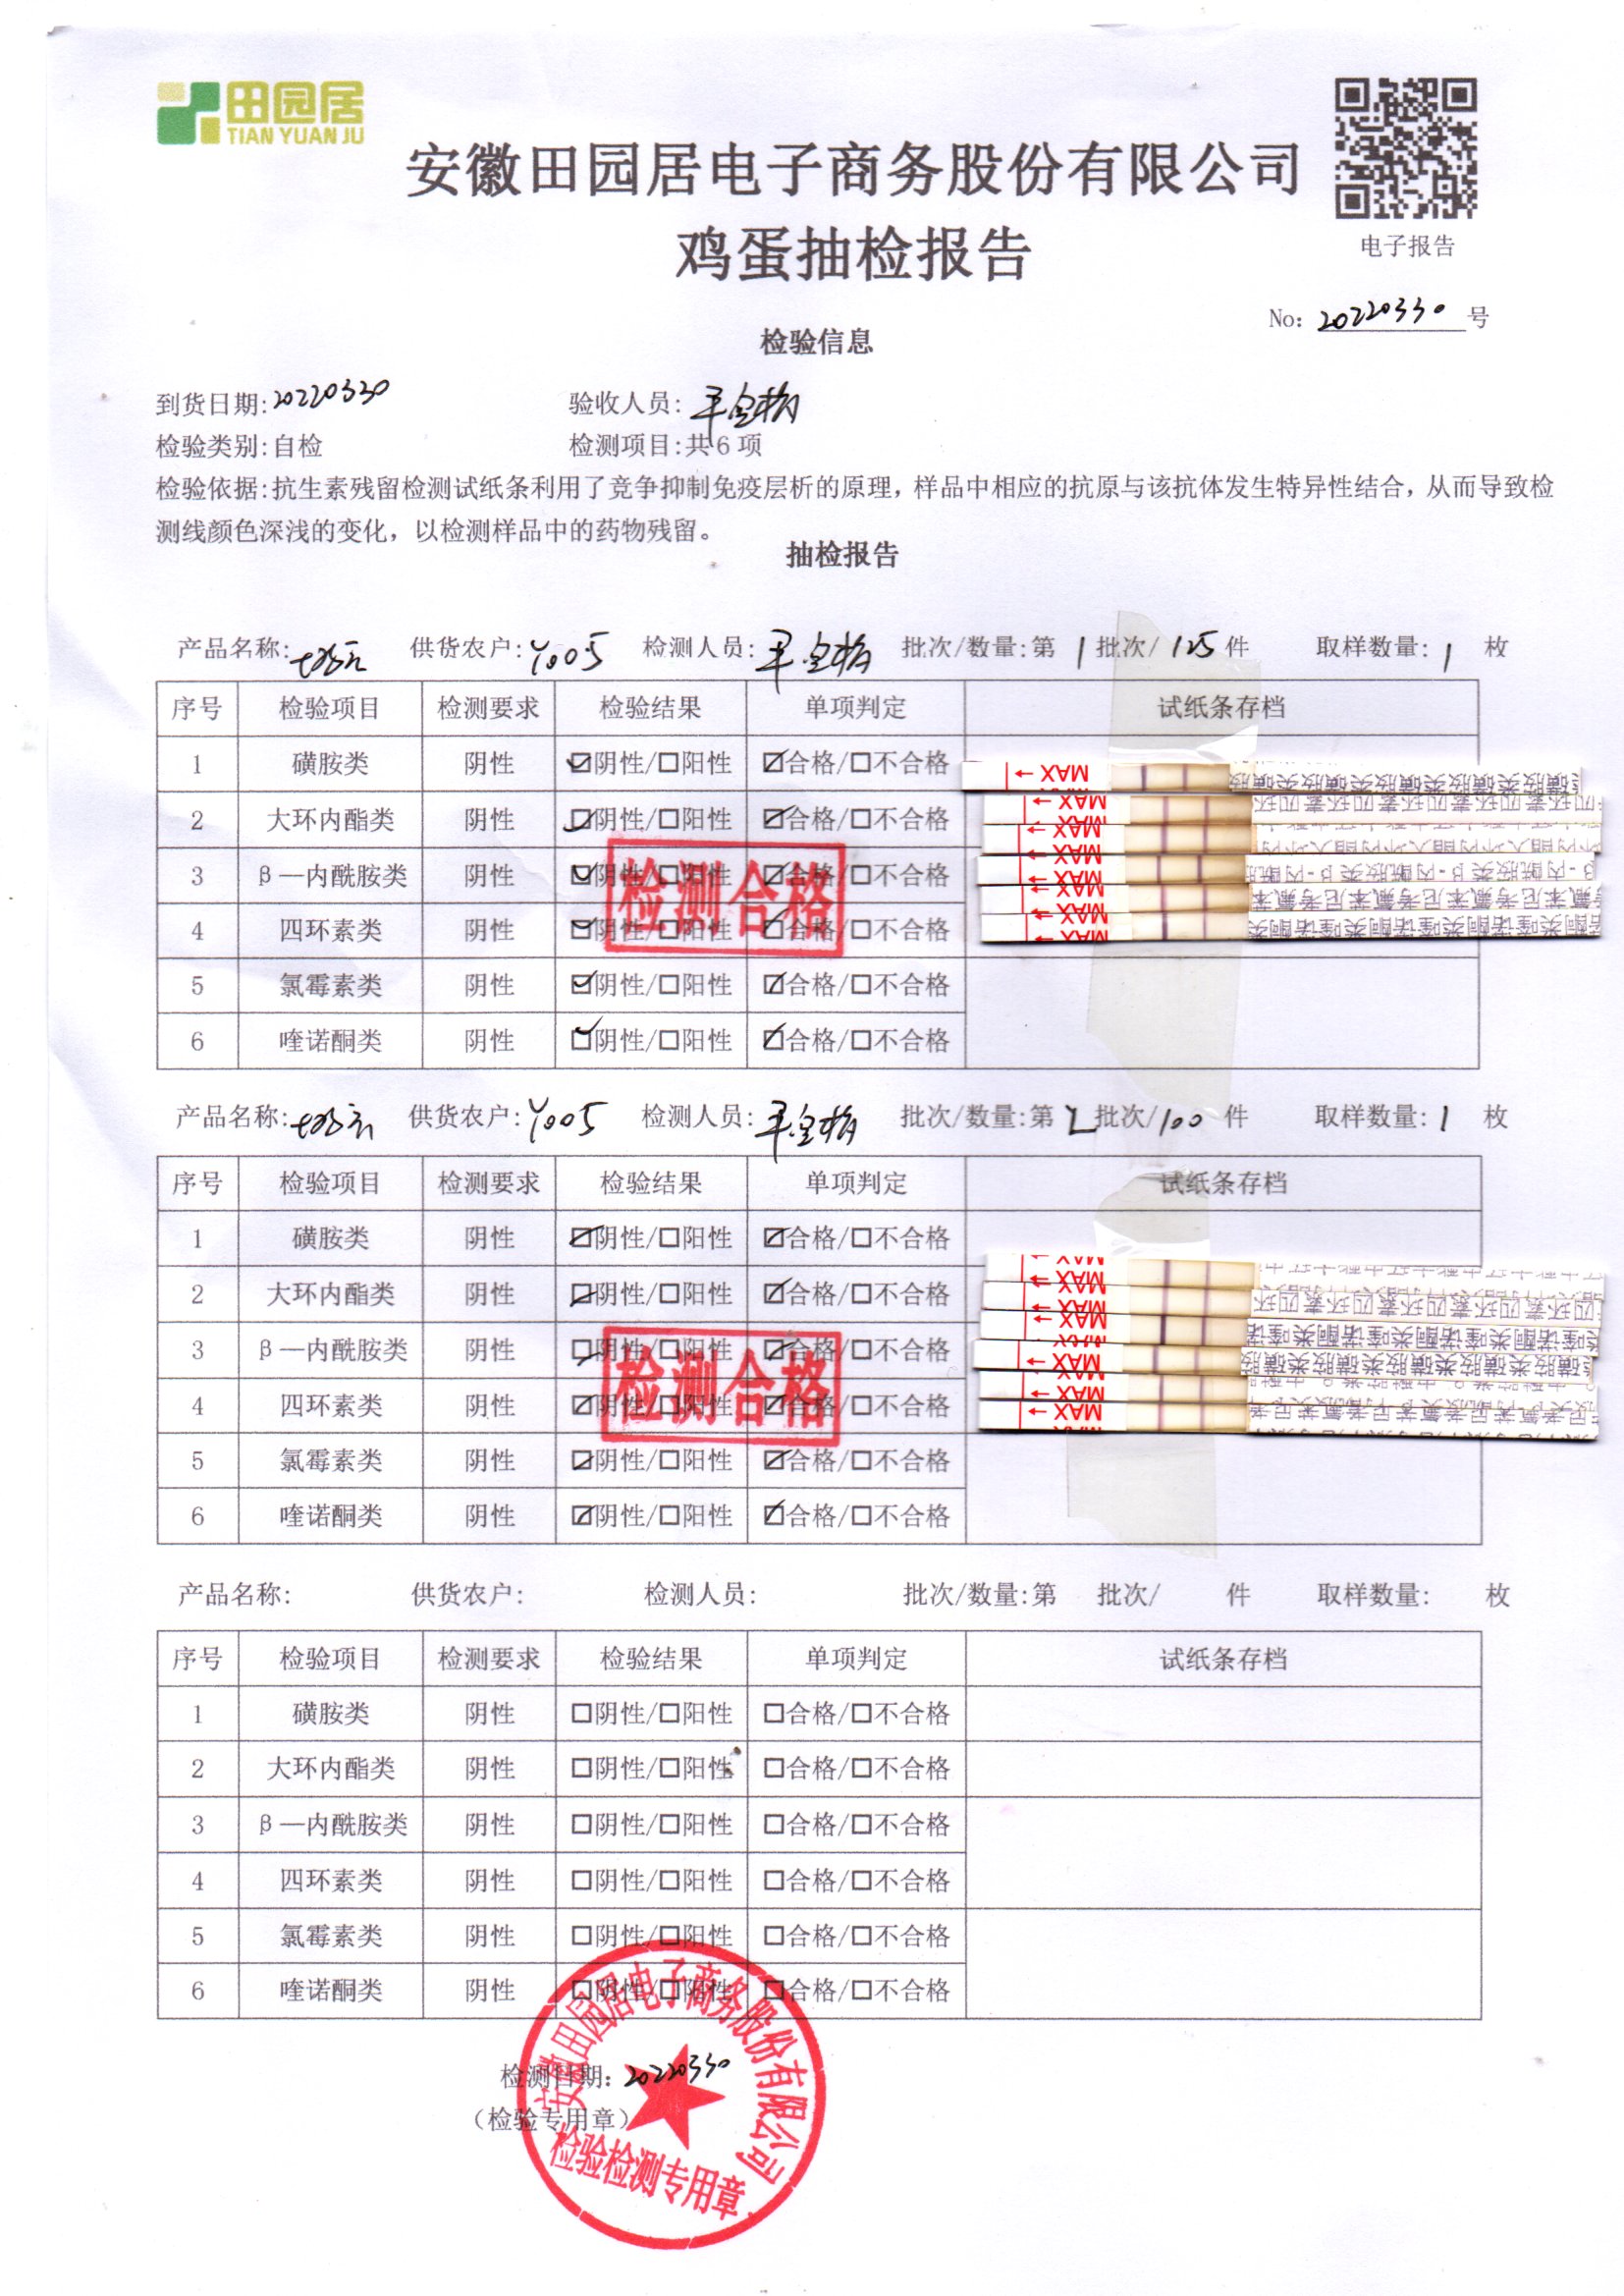 田园居
TIAN YUAN JU
安徽田园居电子商务股份有限公司
鸡蛋抽检报告
电子报告
No: 20220330 号
检验信息
到货日期:20220330 验收人员:
检验类别:自检 检测项目:共6项
检验依据:抗生素残留检测试纸条利用了竞争抑制免疫层析的原理，样品中相应的抗原与该抗体发生特异性结合，从而导致检
测线颜色深浅的变化，以检测样品中的药物残留。
抽检报告
产品名称: 供货农户:Y005 检测人员: 批次/数量:第 1 批次/ 125 件 取样数量: 1 枚
序号 检验项目 检测要求 检验结果 单项判定 试纸条存档
1 磺胺类 阴性 ☑阴性/□阳性 ☑合格/□不合格
2 大环内酯类 阴性 ☑阴性/□阳性 ☑合格/□不合格
3 β—内酰胺类 阴性 ☑阴性/□阳性 ☑合格/□不合格
4 四环素类 阴性 ☑阴性/□阳性 ☑合格/□不合格
5 氯霉素类 阴性 ☑阴性/□阳性 ☑合格/□不合格
6 喹诺酮类 阴性 ☑阴性/□阳性 ☑合格/□不合格
检测合格
← MAX 磺胺类磺胺类磺胺类磺胺类磺胺
← MAX 四环素四环素四环素四环素四环
← MAX
← MAX β-内酰胺类 β-内酰胺类 β-内酰
← MAX 氟苯尼考氟苯尼考氟苯尼考氟苯
← MAX 喹诺酮类喹诺酮类喹诺酮类
产品名称: 供货农户:Y005 检测人员: 批次/数量:第 2 批次/100 件 取样数量: 1 枚
序号 检验项目 检测要求 检验结果 单项判定 试纸条存档
1 磺胺类 阴性 ☑阴性/□阳性 ☑合格/□不合格
2 大环内酯类 阴性 ☑阴性/□阳性 ☑合格/□不合格
3 β—内酰胺类 阴性 ☑阴性/□阳性 ☑合格/□不合格
4 四环素类 阴性 ☑阴性/□阳性 ☑合格/□不合格
5 氯霉素类 阴性 ☑阴性/□阳性 ☑合格/□不合格
6 喹诺酮类 阴性 ☑阴性/□阳性 ☑合格/□不合格
检测合格
← MAX
← MAX 四环素四环素四环素四环素四环
← MAX 喹诺酮类喹诺酮类喹诺酮类喹诺
← MAX 磺胺类磺胺类磺胺类磺胺类磺胺
← MAX
← MAX
产品名称: 供货农户: 检测人员: 批次/数量:第 批次/ 件 取样数量: 枚
序号 检验项目 检测要求 检验结果 单项判定 试纸条存档
1 磺胺类 阴性 □阴性/□阳性 □合格/□不合格
2 大环内酯类 阴性 □阴性/□阳性 □合格/□不合格
3 β—内酰胺类 阴性 □阴性/□阳性 □合格/□不合格
4 四环素类 阴性 □阴性/□阳性 □合格/□不合格
5 氯霉素类 阴性 □阴性/□阳性 □合格/□不合格
6 喹诺酮类 阴性 □阴性/□阳性 □合格/□不合格
检测日期: 20220330
（检验专用章）
安徽田园居电子商务股份有限公司
检验检测专用章